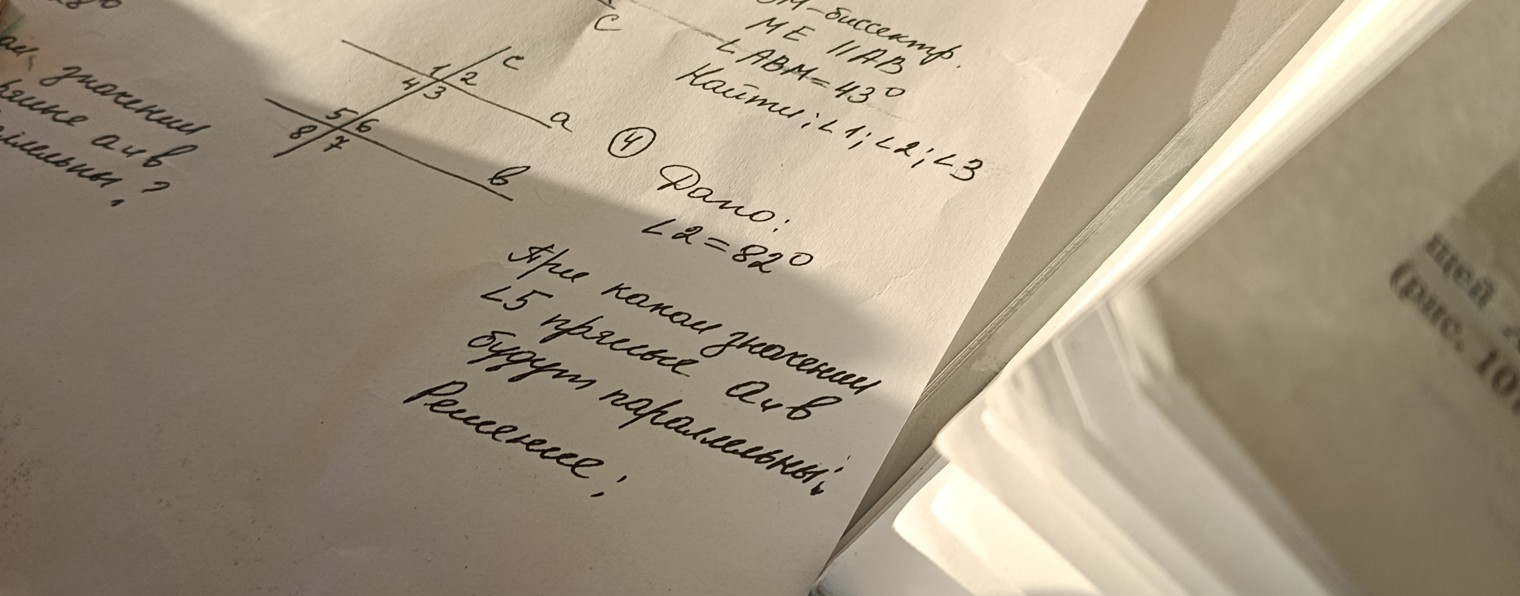 значении
а и в
?
c
1 2
4 3
a
5 6
8 7
в
C
М-биссектр.
МЕ || АВ
∠АВМ=43°
Найти: ∠1; ∠2; ∠3
4
Дано:
∠2=82°
При каком значении
∠5 прямые а и в
будут параллельны;
Решение:
щей
(рис. 10